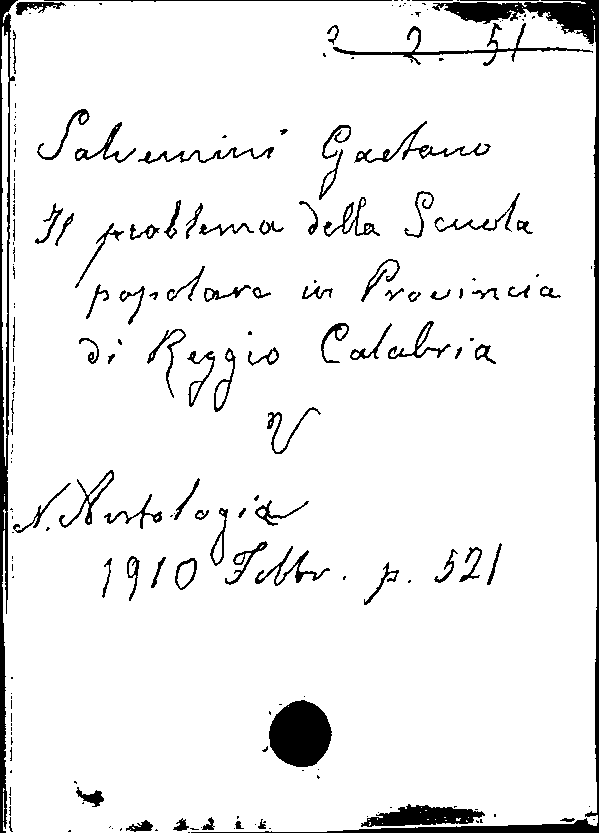 3 2. 51
Salvemini Gaetano
Il problema della Scuola
popolare in Provincia
di Reggio Calabria
V
N. Antologia
1910 Febbr. p. 521